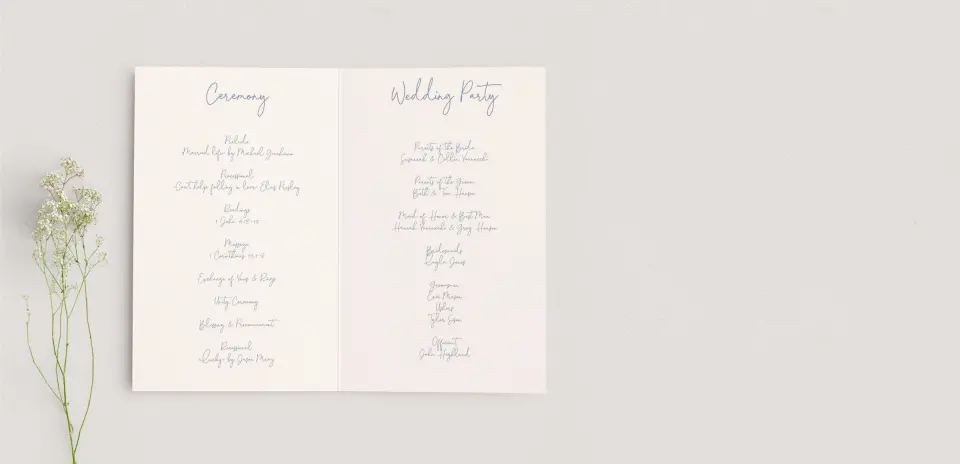 Ceremony
Prelude
Married life by Michael Giacchino
Processional
Can't help falling in love Elvis Presley
Readings
1 John
Message
1 Corinthians
Exchange of Vows & Rings
Unity Ceremony
Blessing & Pronouncement
Recessional
Lucky by Jason Mraz
Wedding Party
Parents of the Bride
Susannah & Collin
Parents of the Groom
Beth & Tom Hanson
Maid of Honor & Best Man
Hannah & Greg Hanson
Bridesmaids
Kayla Jones
Groomsmen
Eric Mason
Ushers
Tyler
Officiant
John Highland